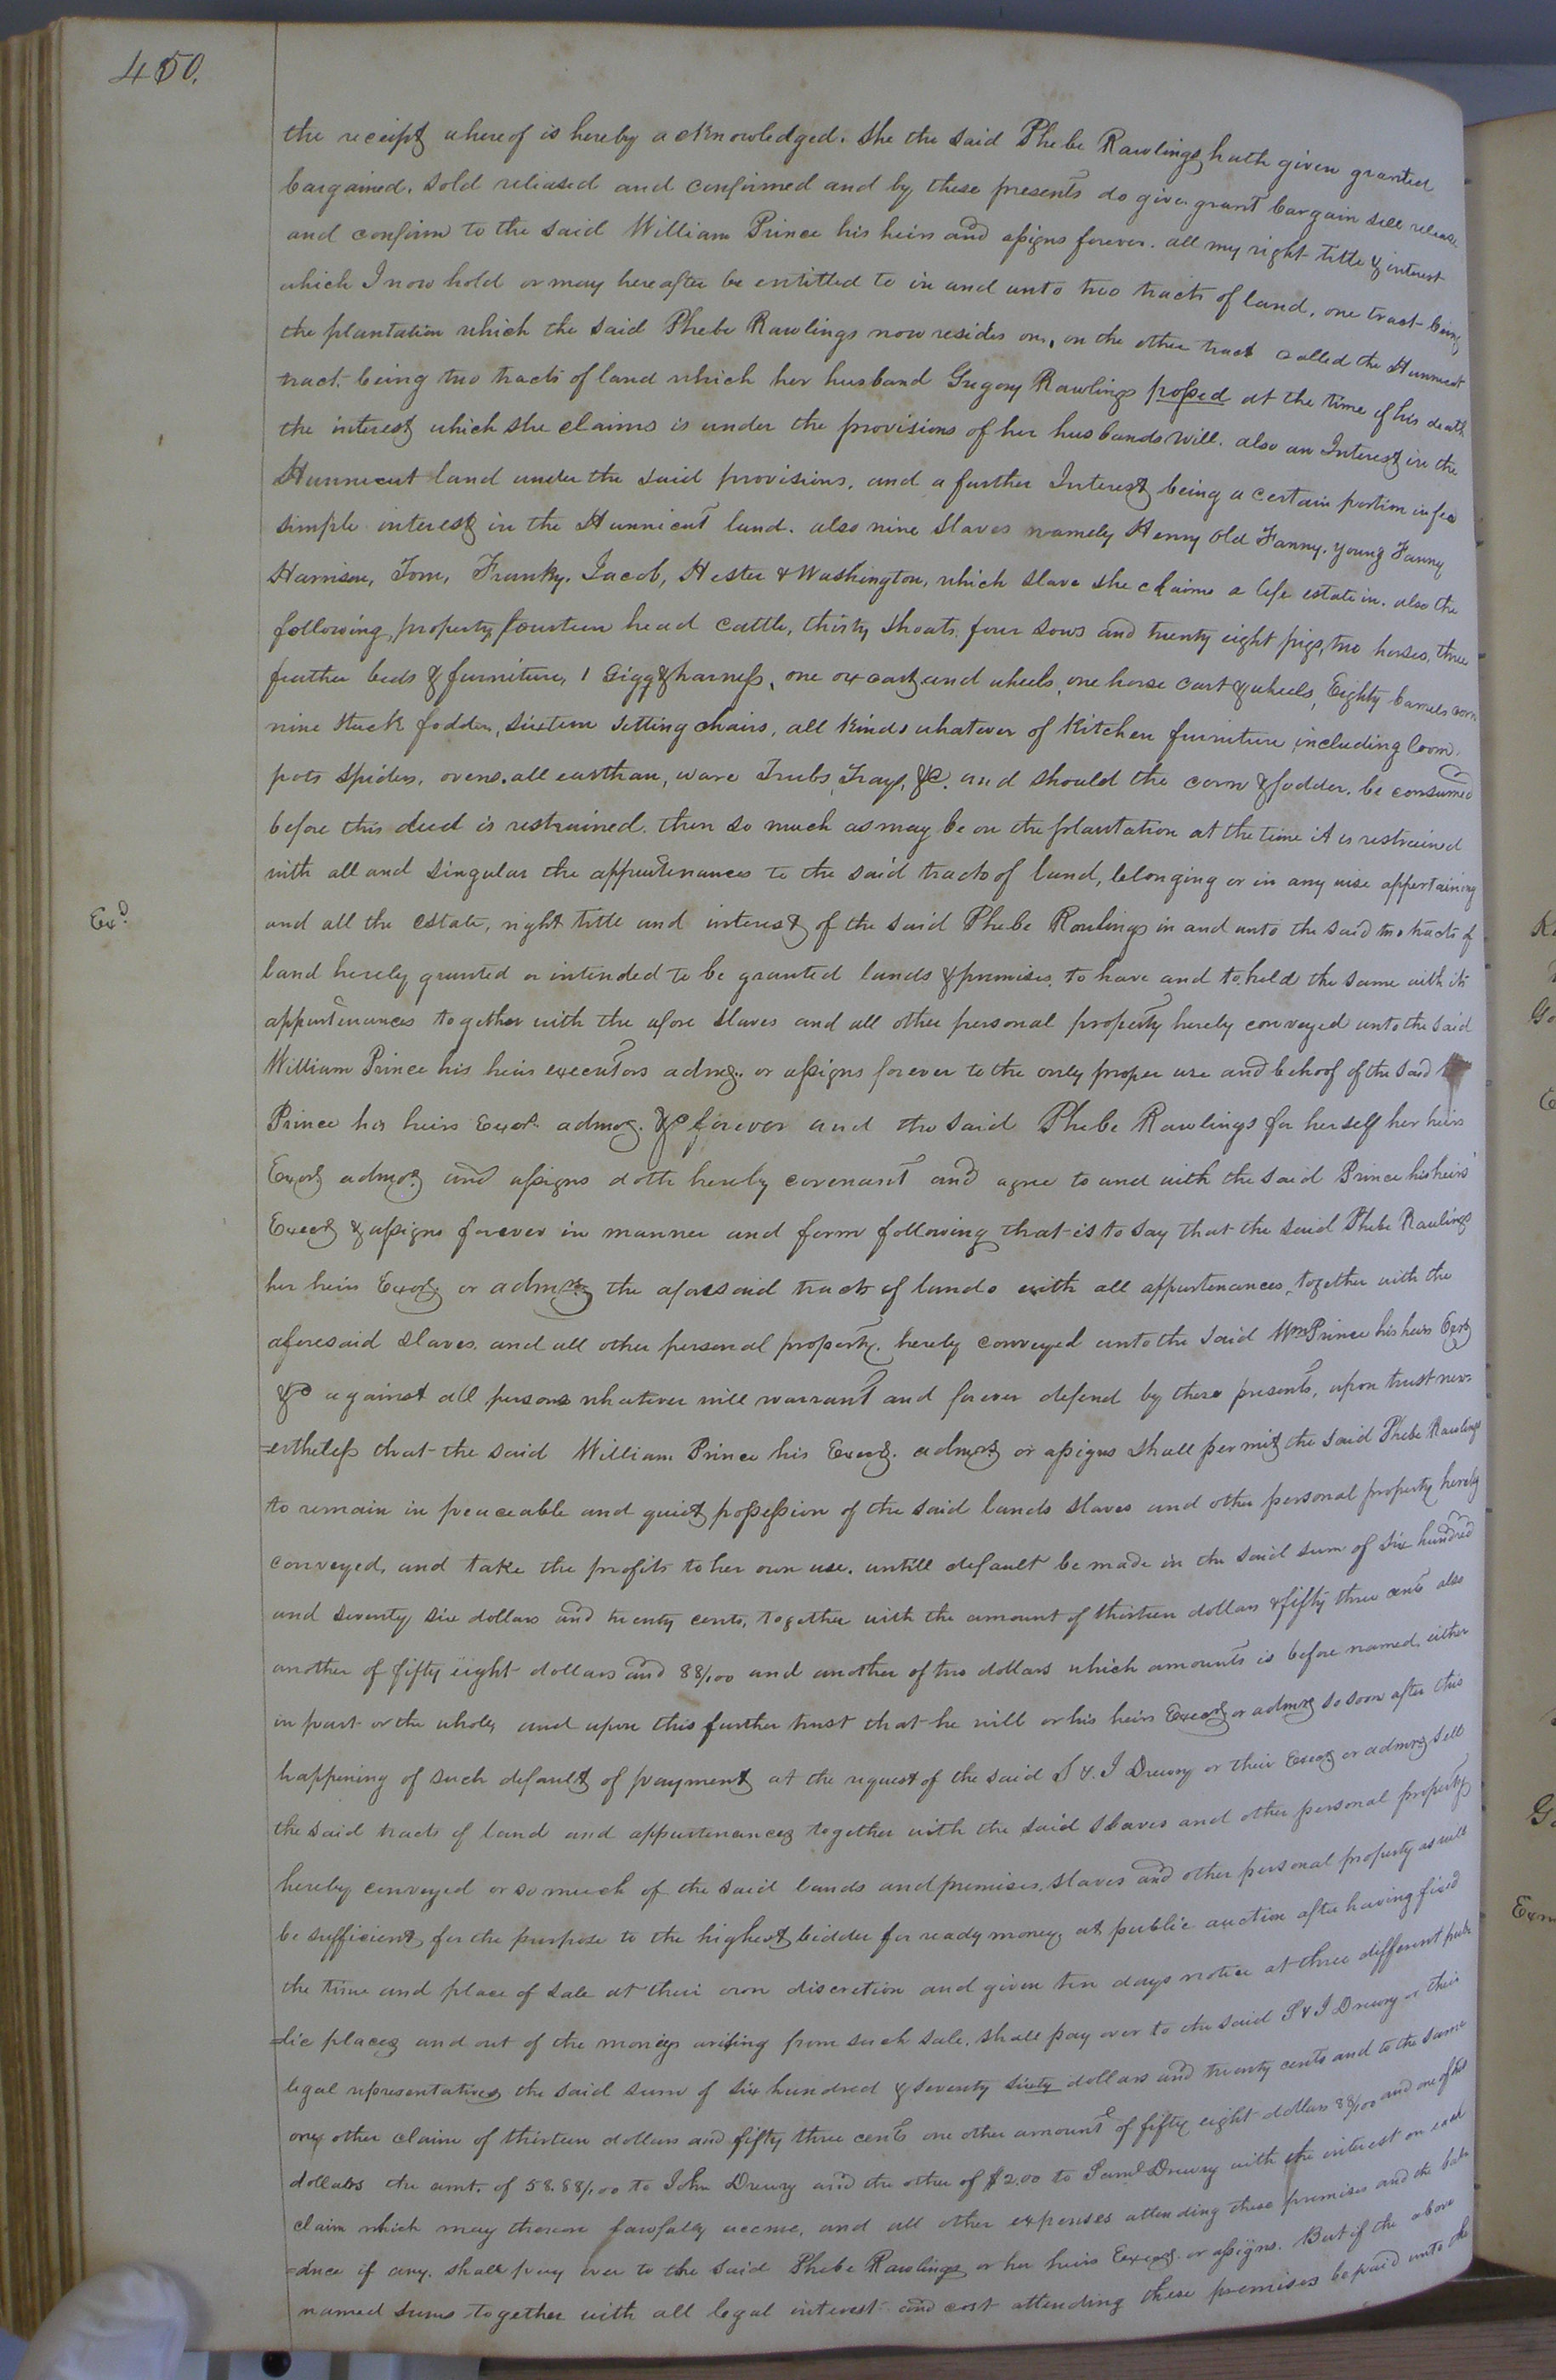 450.
the receipt whereof is hereby acknowledged. She the said Phebe Rawlings hath given granted
bargained. sold released and confirmed and by these presents do give grant bargain sell release
and confirm to the said William Prince his heirs and assigns forever. all my right title & interest
which I now hold or may hereafter be entitled to in and unto two tracts of land, one tract being
the plantation which the said Phebe Rawlings now resides on, on the other tract called the Hunnicut
tract, being two tracts of land which her husband Gregory Rawlings possed at the time of his death
the interest which she claims is under the provisions of her husbands will. also an Interest in the
Hunnicut land under the said provisions, and a further Interest being a certain portion in fee
simple interest in the Hunnicut land. also nine Slaves namely Henny Old Fanny. young Fanny
Harrison, Tom, Franky. Jacob, Hester & Washington, which slave she claims a life estate in. also the
following property fourteen head cattle, thirty Shoats four sows and twenty eight pigs, two horses, three
feather beds & furniture, 1 Gigg & harness, one ox cart and wheels, one horse cart & wheels, Eighty barrels corn
nine stack fodder, sixteen setting chairs, all kinds whatever of Kitchen furniture including loom,
pots spiders, ovens. all earthan, ware Trubs, Trays, &c. and should the corn & fodder. be consumed
before this deed is restrained. then so much as may be on the plantation at the time it is restrained
with all and singular the appurtenances to the said tracts of land, belonging or in any wise appertaining
Exd
and all the estate, right title and interest of the said Phebe Rawlings in and unto the said two tracts of
land hereby granted or intended to be granted lands & premises, to have and to hold the same with its
appurtenances together with the afore slaves and all other personal property hereby conveyed unto the said
William Prince his heirs executors admrs. or assigns forever to the only proper use and behoof of the said
Prince his heirs Exors. admrs. &c forever and the said Phebe Rawlings for herself her heirs
Exors admrs and assigns doth hereby covenant and agree to and with the said Prince his heirs
Execrs & assigns forever in manner and form following that is to say that the said Phebe Rawlings
her heirs Exors or admrs the aforesaid tracts of lands with all appurtenances, together with the
aforesaid slaves. and all other personal property. hereby conveyed unto the said Wm Prince his heirs Exors
&c against all persons whatever will warrant and forever defend by these presents, upon trust nev=
=ertheless that the said William Prince his Execrs. admrs or assigns shall permit the said Phebe Rawlings
to remain in peaceable and quiet possession of the said lands slaves and other personal property hereby
conveyed, and take the profits to her own use. untill default be made in the said sum of six hundred
and seventy six dollars and twenty cents, together with the amount of thirteen dollars & fifty three cents also
another of fifty eight dollars and 88/100 and another of two dollars which amounts is before named. either
in part or the whole, and upon this further trust that he will or his heirs Execrs or admrs so soon after this
happening of such default of payment at the request of the said S & J Drewry or their Execrs or admrs sell
the said tracts of land and appurtenances together with the said slaves and other personal property
hereby conveyed or so much of the said lands and premises, slaves and other personal property as will
be sufficient for the purpose to the highest bidder for ready money, at public auction after having fixed
the time and place of sale at their own discretion and given ten days notice at three different pub=
=lic places and out of the moneys arising from such sale. shall pay over to the said S & J Drewry or their
legal representatives the said sum of six hundred & seventy sixty dollars and twenty cents and to the same
one other claim of thirteen dollars and fifty three cents one other amount of fifty eight dollars 88/100 and one of two
dollars the amt. of 58.88/100 to John Drewry and the other of $2.00 to Saml Drewry with the interest on each
claim which may thereon lawfully accrue, and all other expenses attending these premises and the bala
=dnce if any. shall pay over to the said Phebe Rawlings or her heirs Execrs. or assigns. But if the above
named sums together with all legal interest and cost attending these premises be paid unto the